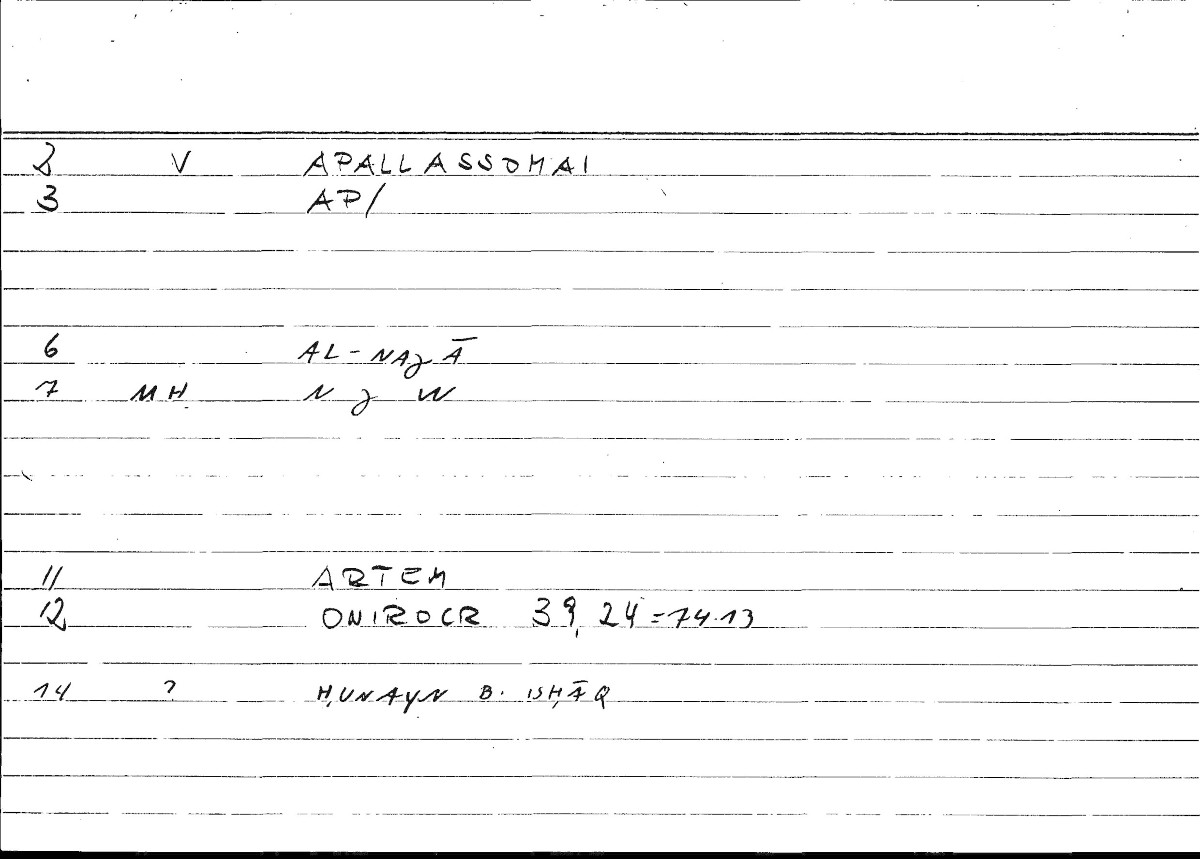 2 V APALLASSOMAI
3 AP/
6 AL-NAJĀ
7 MH N J W
11 ARTEM
12 ONIROCR 39,24=74.13
14 ? H,UNAYN B. ISH,ĀQ